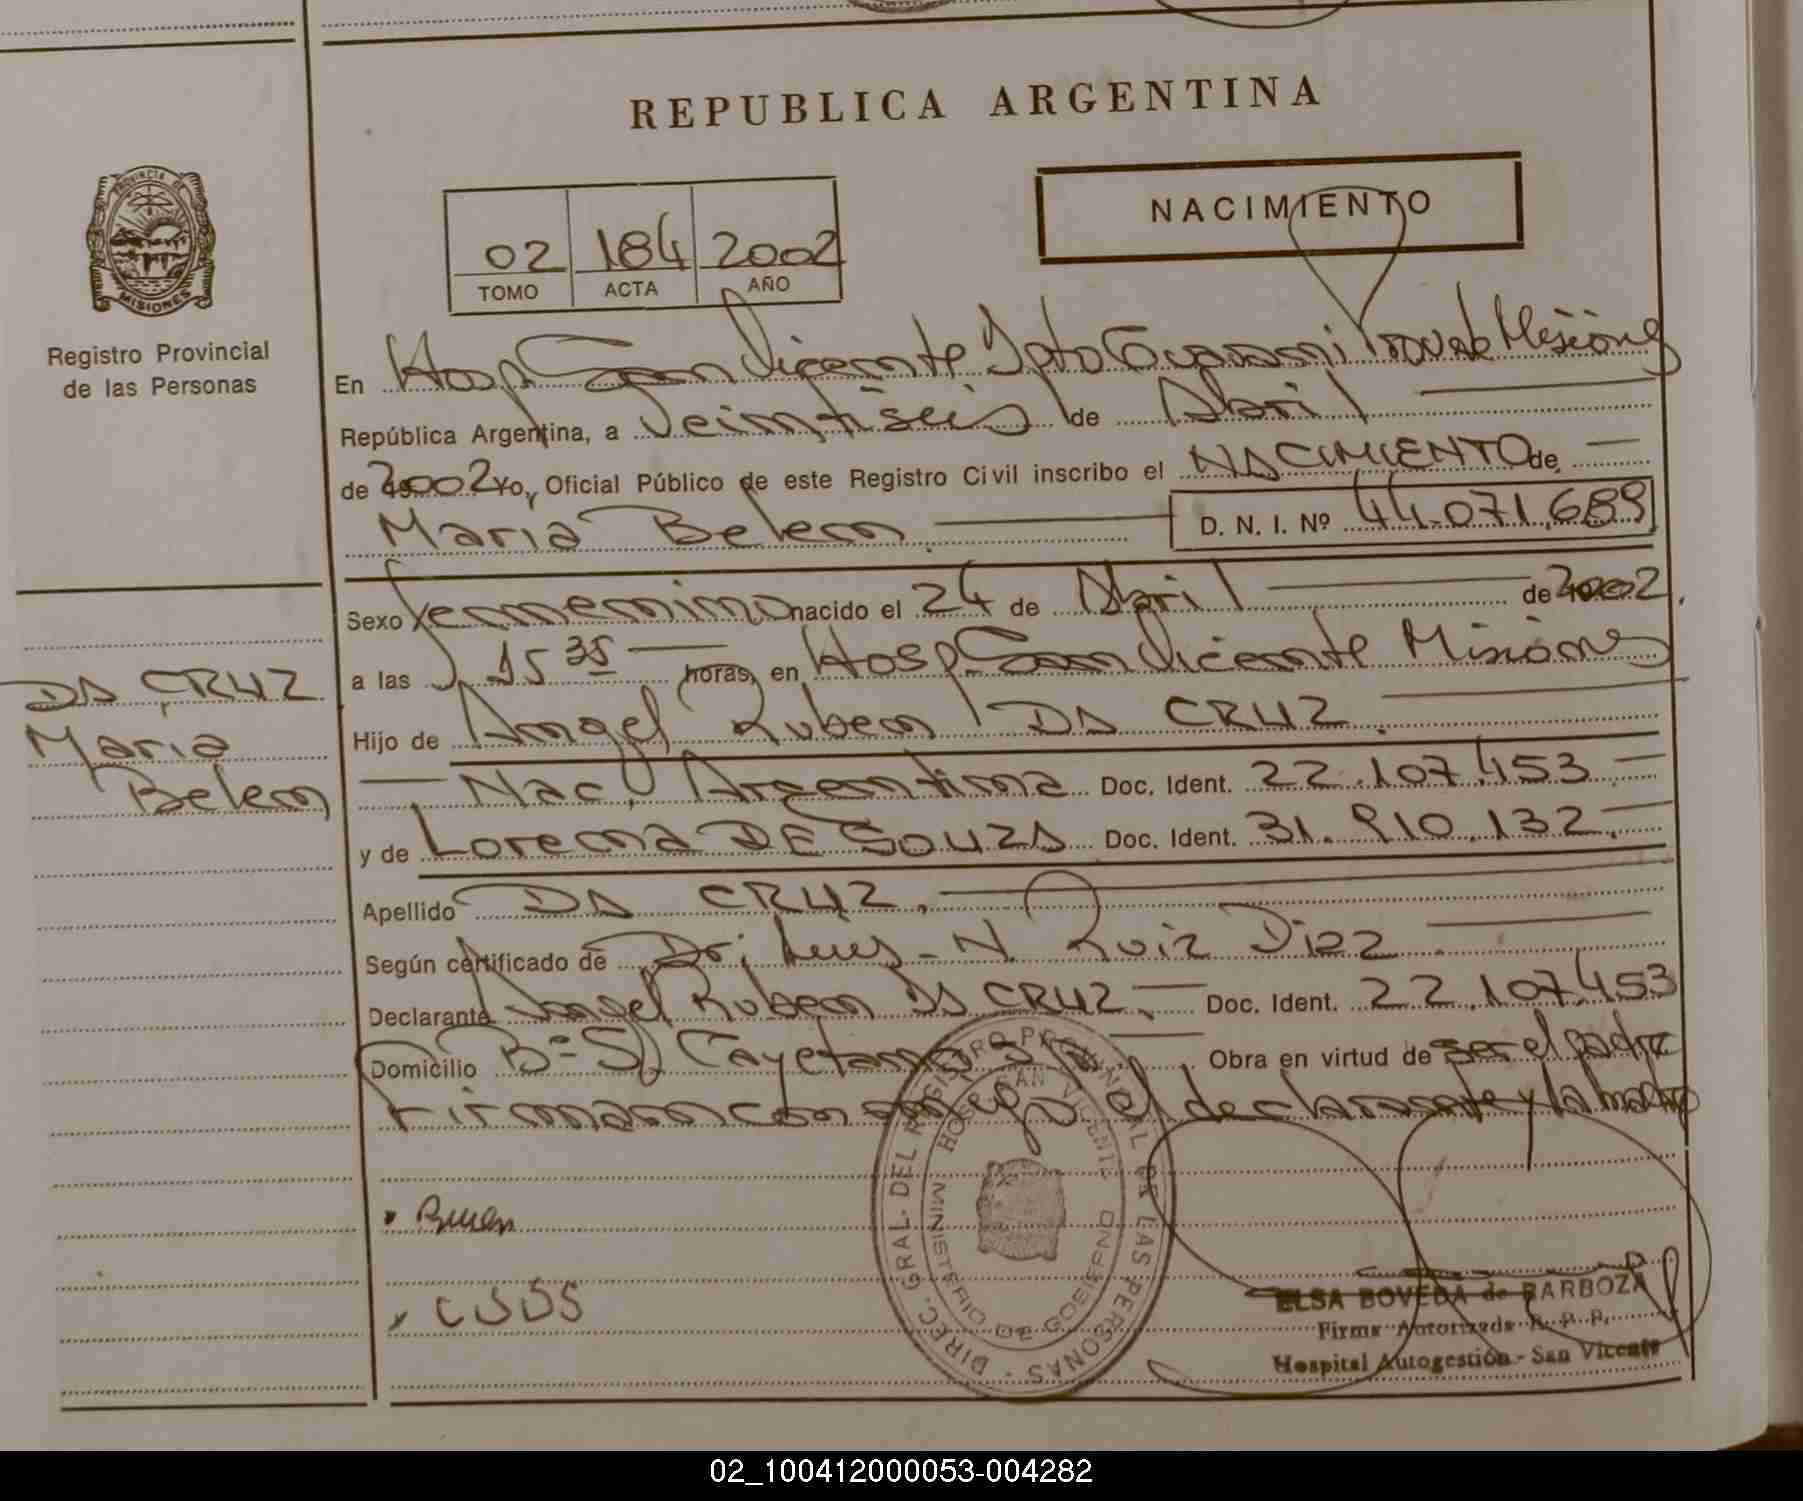 REPUBLICA ARGENTINA
PROVINCIA DE
MISIONES
Registro Provincial
de las Personas
NACIMIENTO
02 184 2002
TOMO ACTA AÑO
En Hosp. San Vicente Dpto Guarani Prov. de Misiones
República Argentina, a Veintiseis de Abril
de 2002 Yo, Oficial Público de este Registro Civil inscribo el NACIMIENTO de
Maria Belen D. N. I. Nº 44.071.689
Sexo femenino nacido el 24 de Abril de 2002.
a las 15 35 horas, en Hosp. San Vicente Misiones
DA CRUZ
Maria
Belen
Hijo de Angel Ruben DA CRUZ.
Nac. Argentina Doc. Ident. 22.107.453
y de Lorena DE SOUZA Doc. Ident. 31.910.132.
Apellido DA CRUZ.
Según certificado de Dr. Luis N. Ruiz Diaz
Declarante Angel Ruben DA CRUZ. Doc. Ident. 22.107.453
Domicilio Bº S. Cayetano Obra en virtud de ser el padre
Firman conmigo el declarante y la madre
DIREC. GRAL. DEL REGISTRO PROVINCIAL DE LAS PERSONAS
HOSP. SAN VICENTE
MINISTERIO DE GOBIERNO
ELSA BOVEDA de BARBOZA
Firma Autorizada R. P. P.
Hospital Autogestión - San Vicente
02_100412000053-004282